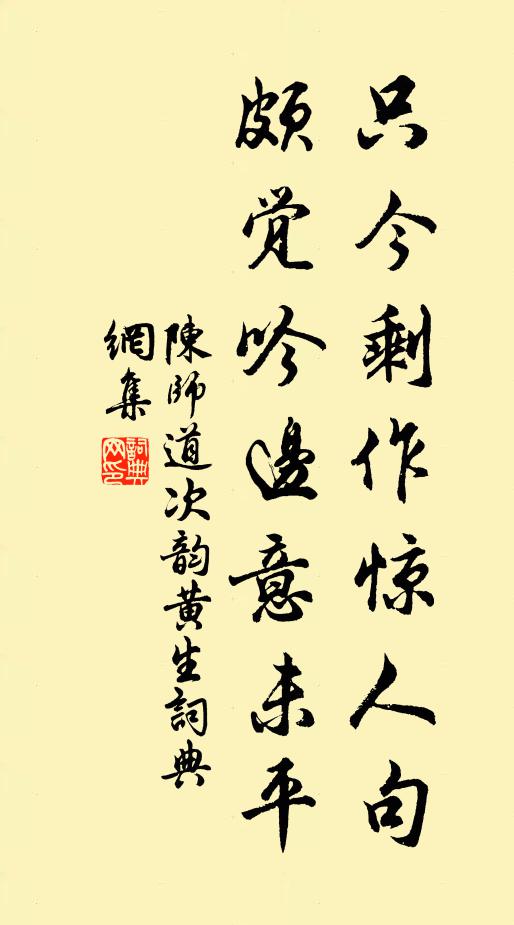 只今剩作惊人句
頗觉吟邊意未平
陳師道次韵黄生詞典
網集
詞典
网印